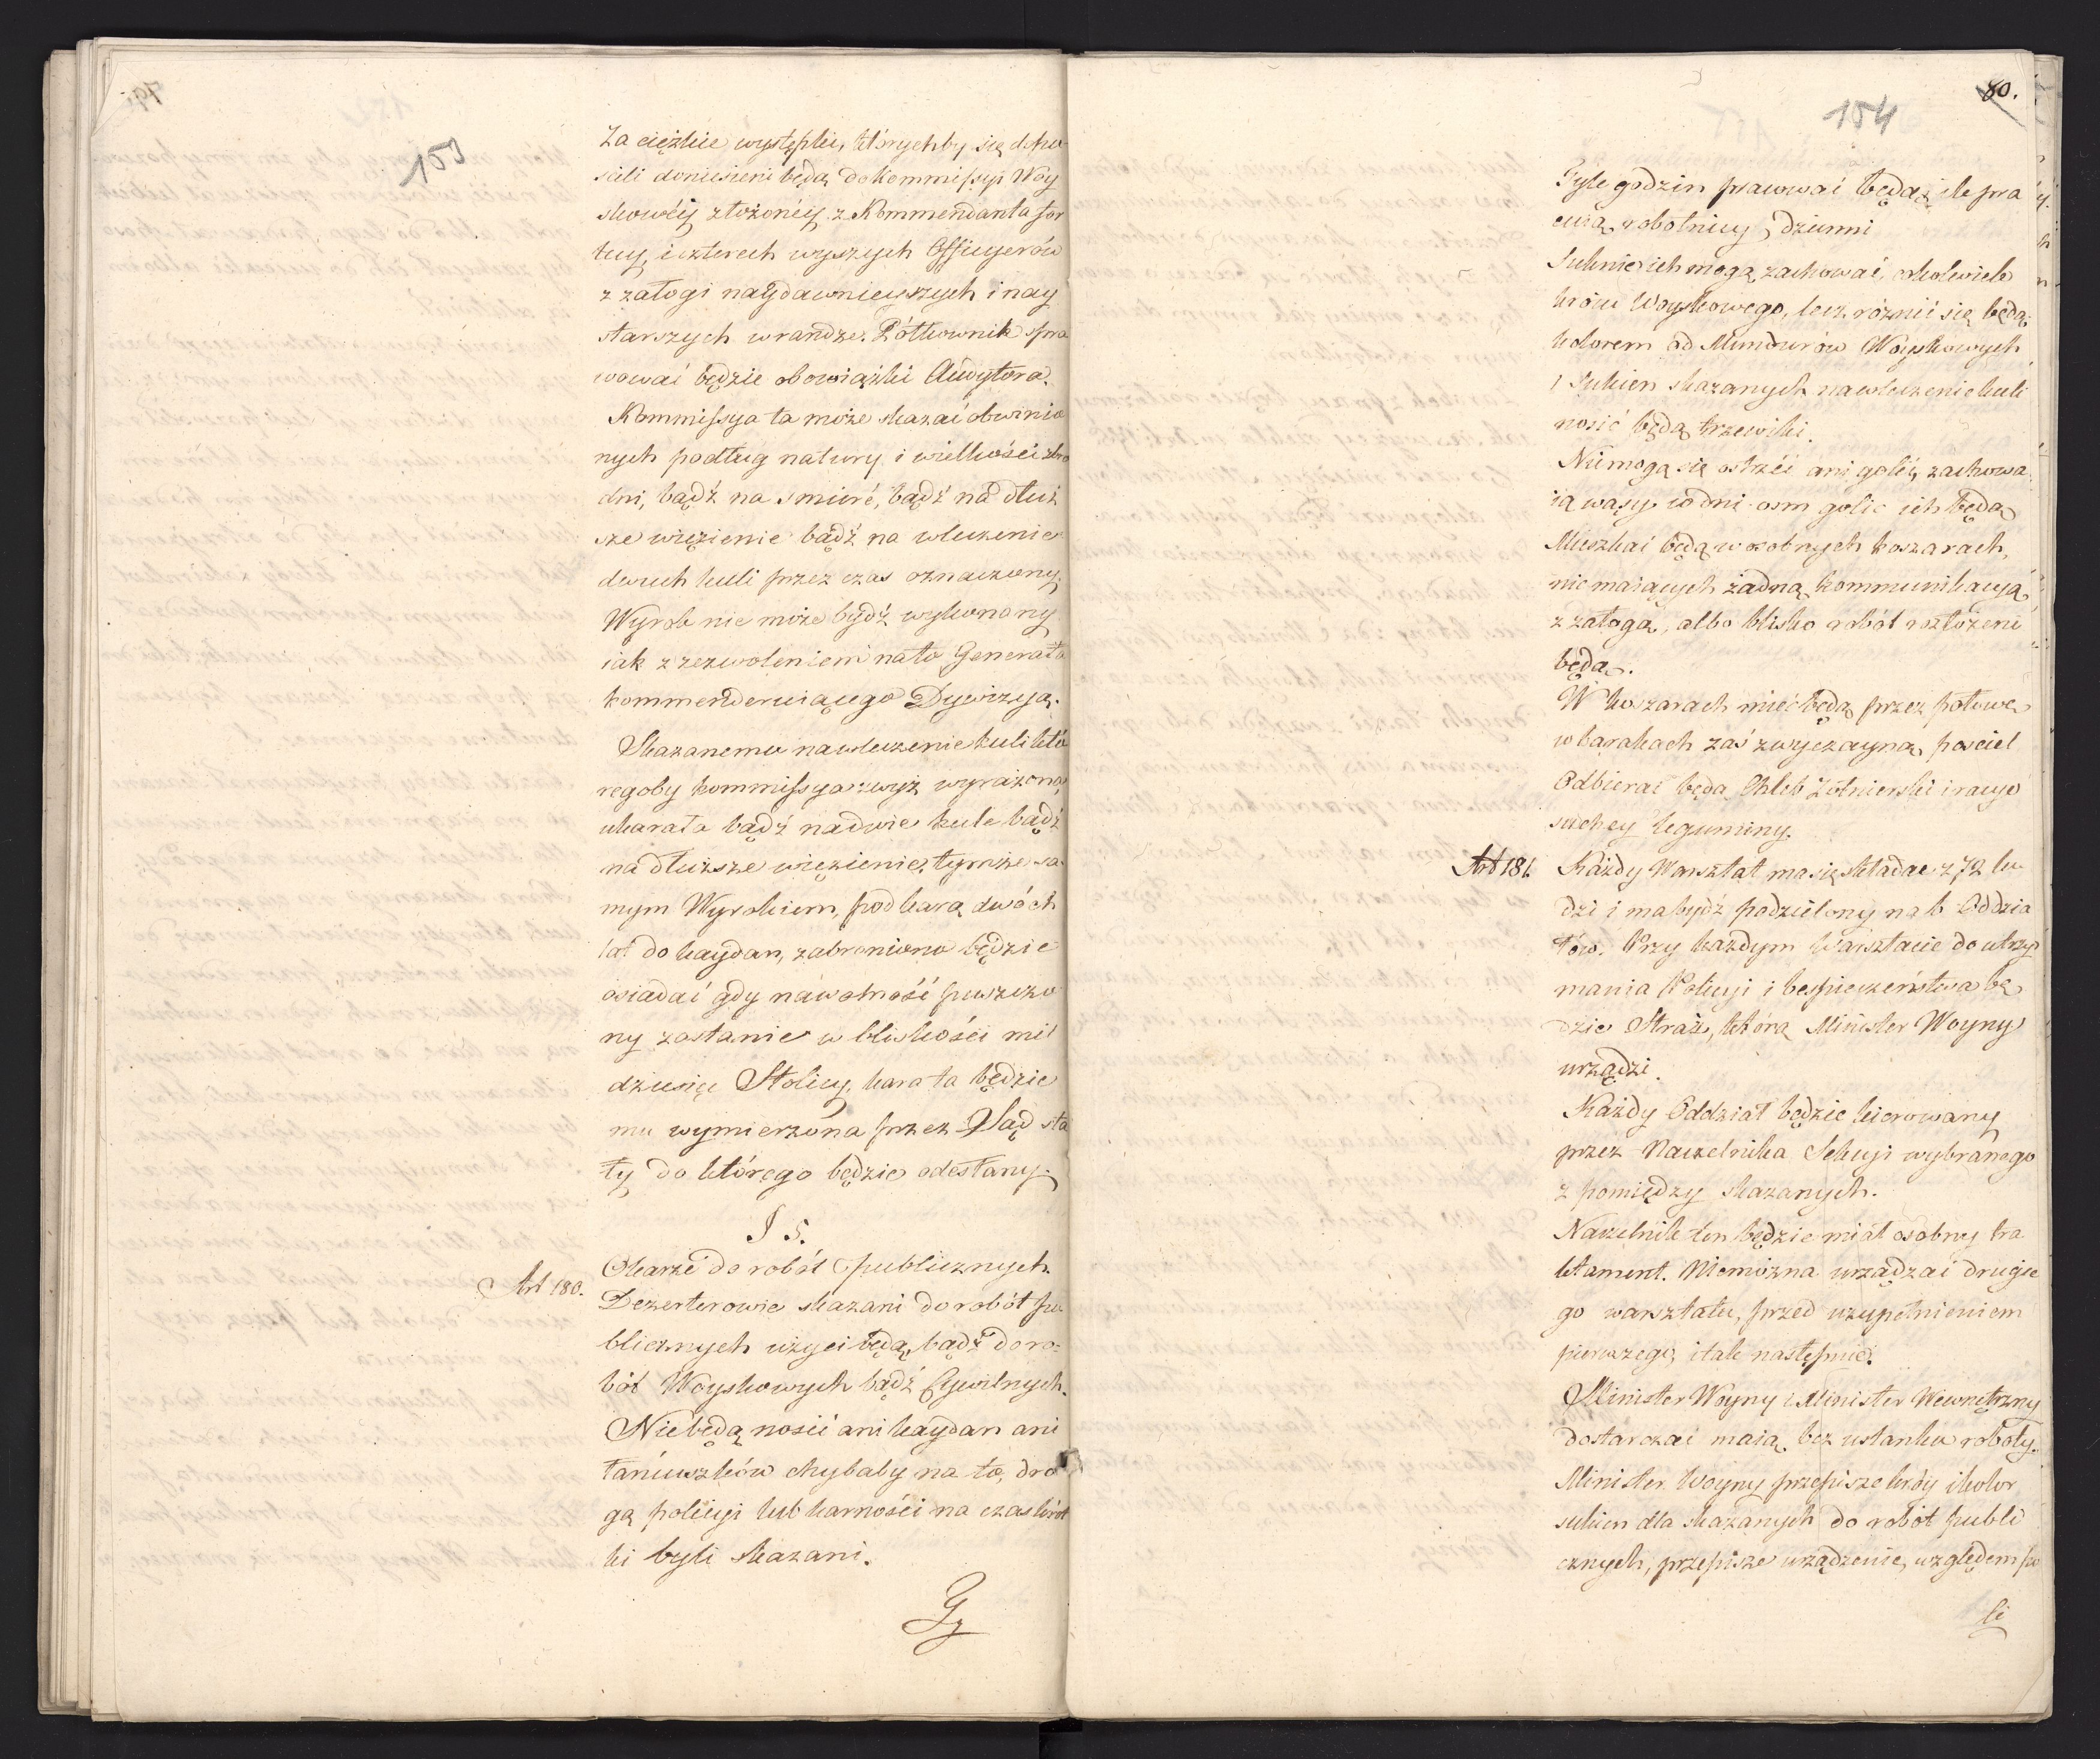 153
Za ciężkie występki, którychby się dopu-
scili doniesieni będą do Kommissyi Woy
skowéy złożonéy z Kommendanta for
tecy, i czterech wyszych Officyerów
z załogi naydawnieyszych i nay
starszych w randze. Półkownik spra
wować będzie obowiązki Audytora.
Kommissya ta może skazać obwinio
nych podług natury i wielkości zbro
dni, bądź na smierć, bądź na dłuż
sze więzienie bądź na wleczenie
dwuch kuli przez czas oznaczony.
Wyrok nie może bydź wykonany
iak z zezwoleniem na to Generała
kommenderuiącego Dywizyą.
Skazanemu na wleczenie kuli któ
regoby kommissya zwyż wyrażona
ukarała bądź na dwie kule bądź
na dłuższe więzienie, tymże sa-
mym Wyrokiem, pod karą dwóch
lat do kaydan, zabroniono będzie
osiadać gdy na wolność puszczo
ny zostanie w bliskości mil
dziesięć Stolicy, kara ta będzie
mu wymierzona przez Sąd sta
ły do którego będzie odesłany.
§ 5.
O karze do robót publicznych.
Art 180.
Dezerterowie skazani do robót pu
blicznych użyci będą, bądź do ro=
bót Woyskowych bądź Cywilnych.
Nie będą nosić ani kaydan ani
łańcuszków chybaby na to, dro
gą policyi lub karności na czas krót
ki byli skazani.
80.
154
Tyle godzin pracować będą, ile pra
cuią robotnicy dzienni
Suknie ich mogą zachować, cokolwiek
kroiu Woyskowego, lecz różnić się będą
kolorem od Mundurów Woyskowych
i Sukien skazanych na wleczenie kuli
nosić będą trzewiki.
Nie mogą się ostrzéć ani golić, zachowa
ią wąsy co dni osm golić ich będą
Mieszkać będą w osobnych koszarach,
nie maiących żadną kommunikacyą
z załogą, albo blisko robót rozłożeni
będą.
W koszarach mieć będą przez połowę
w barakach zaś zwyczayną pościel
Odbierać będą Chleb Żołnierski i racyę
suchey leguminy.
Art 181.
Każdy Warsztat ma się składać z 72 lu
dzi i ma bydź podzielony na 6 Oddzia
łów. Przy każdym Warsztacie do utrzy
mania Policyi i bespieczeństwa bę
dzie Straż, którą Minister Woyny
urządzi.
Każdy Oddział będzie kierowany
przez Naczelnika Sekcyi wybranego
z pomiędzy skazanych.
Naczelnik ten będzie miał osobny tra
ktament. Niemożna urządzać drugie
go warsztatu, przed uzupełnieniem
pierwszego, i tak następnie.
Minister Woyny i Minister Wewnętrzny
dostarczać maią bez ustanku roboty.
Minister Woyny przepisze króy i kolor
sukien dla skazanych do robót publi
cznych, przepisze urządzenie, względem po
li